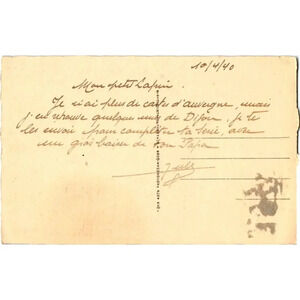 10/4/40
Mon petit lapin.
Je n'ai plus de cartes d'auvergne, mais
j'en retrouve quelques unes de Dijon, je te
les envoie pour compléter ta série, avec
un gros baiser de ton Papa